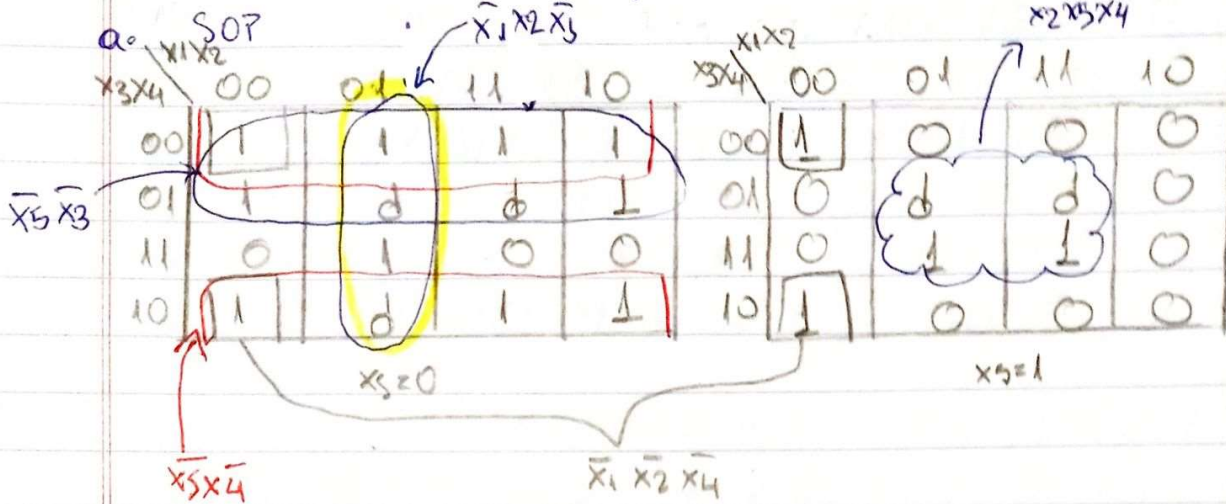 a. SOP
x̄1 x2 x̄5
x2 x5 x4
x1x2
x3x4 00 01 11 10
00 1 1 1 1
01 1 d d 1
11 0 1 0 0
10 1 d 1 1
x5=0
x1x2
x3x4 00 01 11 10
00 1 0 0 0
01 0 d d 0
11 0 1 1 0
10 1 0 0 0
x5=1
x̄5 x̄3
x̄5 x̄4
x̄1 x̄2 x̄4